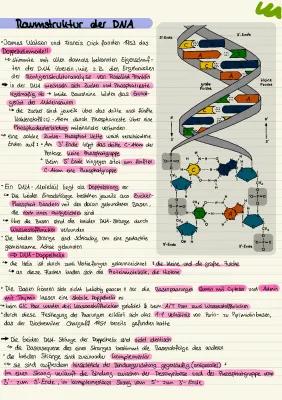 Raumstruktur der DNA
- James Watson und Francis Crick fanden 1953 das
Doppelhelixmodell!
→ stimmte mit allen damals bekannten Eigenschaf-
ten der DNA überein, wie z.B. den Ergebnissen
der Röntgenstrukturanalyse von Rosalind Franklin
→ in der DNA wechseln sich Zucker und Phosphatreste
regelmäßig ab → beide Bausteine bilden das
gerüst der Makromoleküls
→ die Zucker sind jeweils über das dritte und fünfte
Kohlenstoff(C)-Atom durch Phosphatreste über eine
Phosphodiesterbindung miteinander verbunden
→ eine solche Zucker-Phosphat Kette weist verschiedene
Enden auf: • Am 3' Ende trägt das dritte C-Atom der
Pentose keine Phosphatgruppe
• Beim 5' Ende hingegen sitzt am fünften
C-Atom eine Phosphatgruppe
- Ein DNA-Molekül liegt als Doppelstrang vor
→ die beiden Einzelstränge bestehen jeweils aus Zucker-
Phosphat Bändern mit den daran gebundenen Basen,
die nach innen
→ über die Basen sind die beiden DNA-Stränge durch
Wasserstoffbrücken verbunden
- Die beiden Stränge sind schraubig um eine gedachte
gemeinsame Achse gewunden
⇒ DNA-Doppelhelix
→ die Helix ist durch zwei Vertiefungen gekennzeichnet → die kleine und die große Furche
→ an diese Furchen binden sich die Proteinmoleküle, die Histone
- Die Basen können sich nicht beliebig paaren → nur die Basenpaarungen Guanin mit Cytosin und Adenin
mit Thymin lassen eine stabile Doppelhelix zu
→ beim GC Paar werden drei Wasserstoffbrücken gebildet & beim A/T Paar zwei Wasserstoffbrücken
→ durch diese Festlegung der Paarungen erklärt sich das 1:1 Verhältnis von Purin- zu Pyrimidinbasen,
das der Biochemiker Chargaff 1951 bereits gefunden hatte
→ Die beiden DNA Stränge der Doppelhelix sind nicht identisch
→ die Basensequenz des einen Stranges bestimmt die Basenabfolge des anderen
- die beiden Stränge sind zueinander komplementär
→ sie sind außerdem hinsichtlich der Bindungsrichtung gegenläufig (antiparallel)
Im einen Strang verläuft die Bindung zwischen der Desoxyribose und der Phosphatgruppe vom
3' zum 5'-Ende, im komplementären Strang vom 5' zum 3'-Ende
3'-Ende
5'-Ende
große
Furche
kleine
Furche
A
5'-Ende
3'-Ende